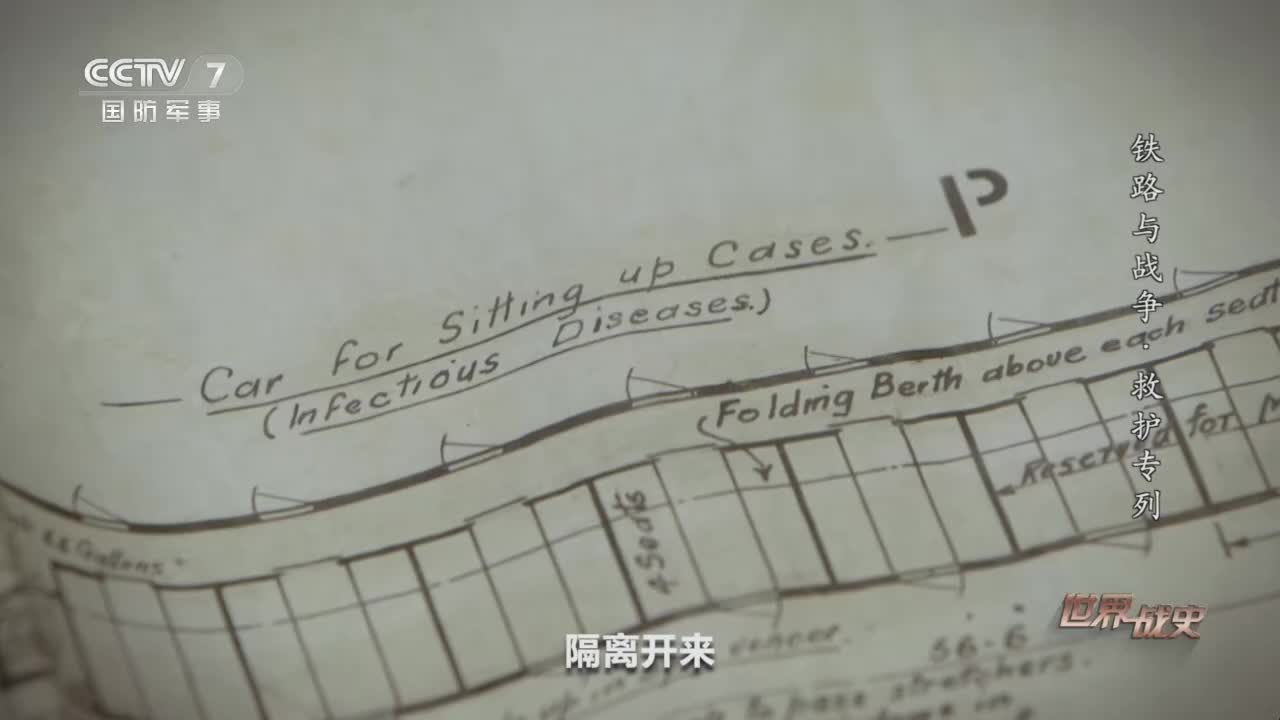 CCTV 7
国防军事
铁路与战争·救护专列
P
Car for Sitting up Cases.
(Infectious Diseases.)
Folding Berth above each seat
Reserved for
4 Seats
Gallons
56-6
to pass stretchers.
世界战史
隔离开来